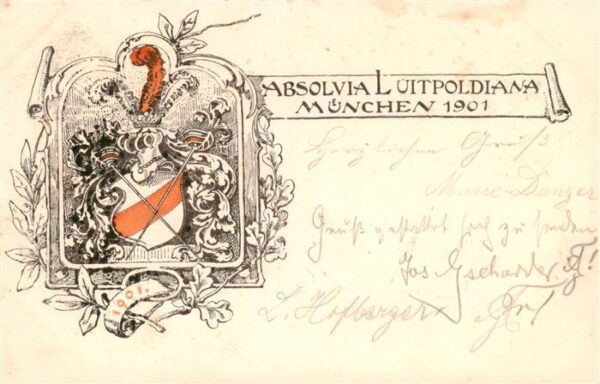 ABSOLVIA LUITPOLDIANA
MÜNCHEN 1901
Herzlichen Gruß
Marie Danzer
Gruß gestattet sich zu senden
Jos Gschaider
L. Hofberger
1901.